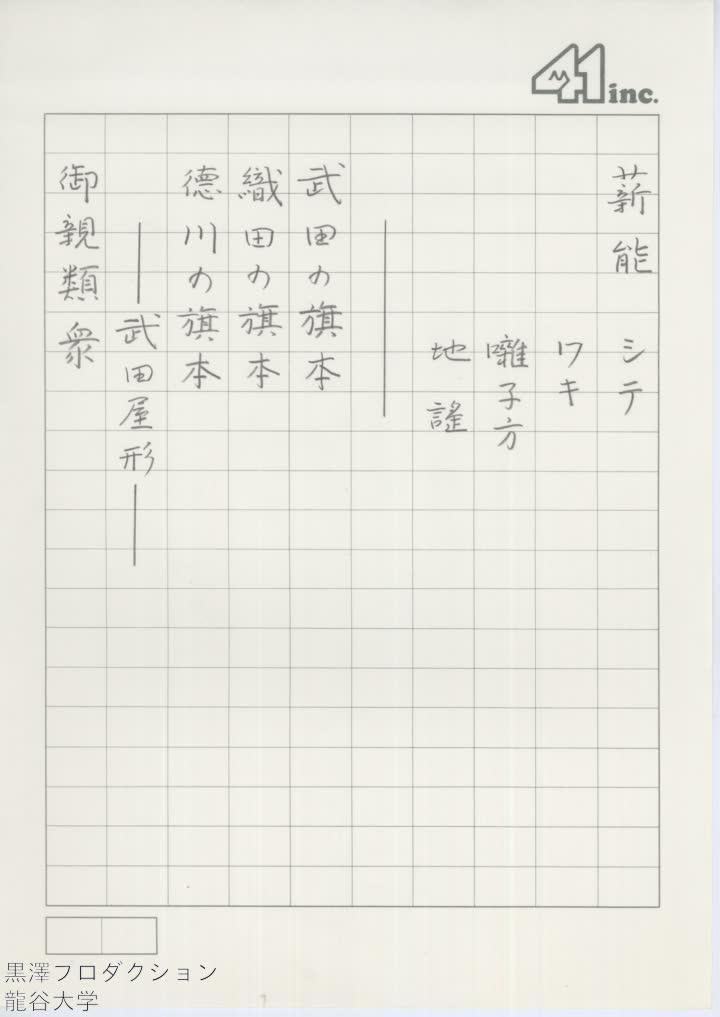 41 inc.
薪能　シテ
ワキ
囃子方
地謡
武田の旗本
織田の旗本
徳川の旗本
――武田屋形――
御親類衆
黒澤プロダクション
龍谷大学